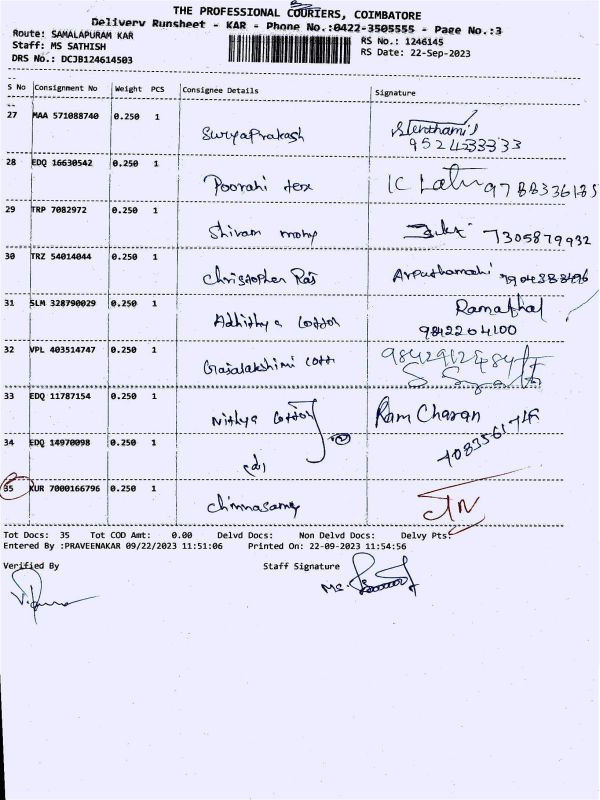 THE PROFESSIONAL COURIERS, COIMBATORE
Delivery Runsheet - KAR - Phone No.:0422-3505555 - Page No.:3
Route: SAMALAPURAM KAR
Staff: MS SATHISH
DRS No.: DCJB124614503
RS No.: 1246145
RS Date: 22-Sep-2023
S No Consignment No Weight PCS Consignee Details Signature
27 MAA 571088740 0.250 1 Suryaprakash
9524333333
28 EDQ 16630542 0.250 1 Poorani tex
29 TRP 7082972 0.250 1 Shivam 7305879932
30 TRZ 54014044 0.250 1 Christopher Raj
31 SLM 328790029 0.250 1 Adhithya cotton Ramathal
9842204100
32 VPL 403514747 0.250 1 Gajalakshimi
33 EDQ 11787154 0.250 1 Nithya cotton Ram Charan
34 EDQ 14970098 0.250 1
35 KUR 7000166796 0.250 1 Chinnasamy
Tot Docs: 35 Tot COD Amt: 0.00 Delvd Docs: Non Delvd Docs: Delvy Pts:
Entered By :PRAVEENAKAR 09/22/2023 11:51:06 Printed On: 22-09-2023 11:54:56
Verified By Staff Signature